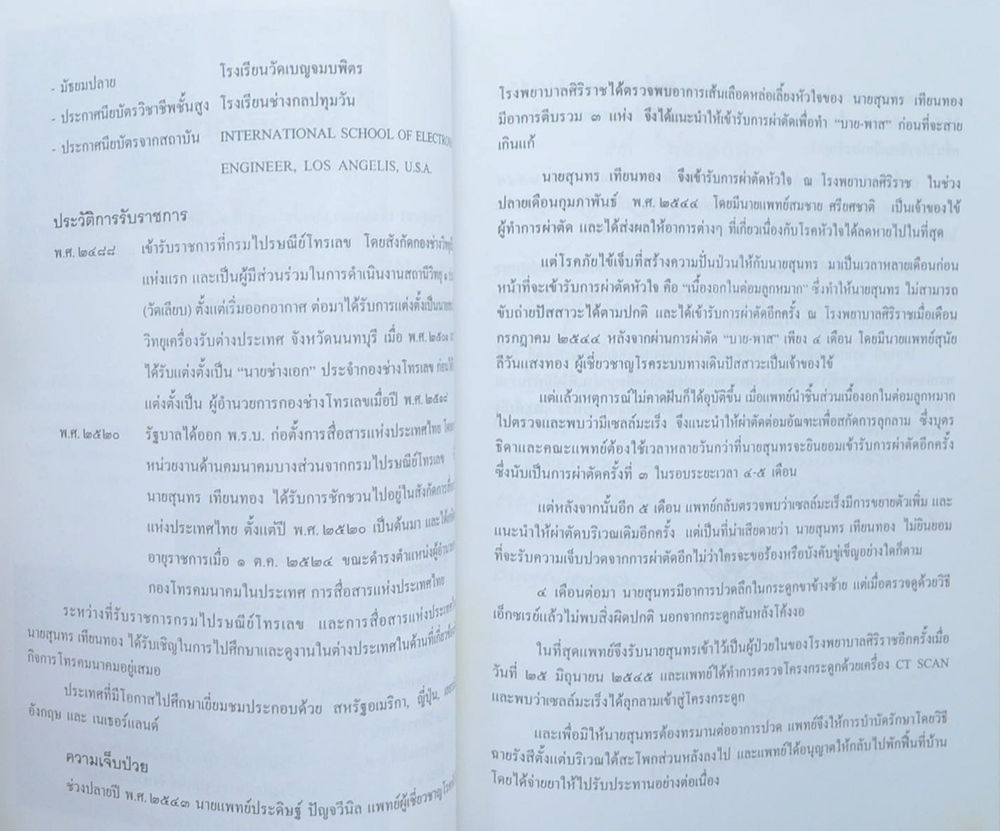 - มัธยมปลาย โรงเรียนวัดเบญจมบพิตร
- ประกาศนียบัตรวิชาชีพชั้นสูง โรงเรียนช่างกลปทุมวัน
- ประกาศนียบัตรจากสถาบัน INTERNATIONAL SCHOOL OF ELECTRON
ENGINEER, LOS ANGELIS, U.S.A.
ประวัติการรับราชการ
พ.ศ. ๒๔๘๘ เข้ารับราชการที่กรมไปรษณีย์โทรเลข โดยสังกัดกองช่างวิทยุ
แห่งแรก และเป็นผู้มีส่วนร่วมในการดำเนินงานสถานีวิทยุ
(วัดเลียบ) ตั้งแต่เริ่มออกอากาศ ต่อมาได้รับการแต่งตั้งเป็นนาย
วิทยุเครื่องรับต่างประเทศ จังหวัดนนทบุรี เมื่อ
ได้รับแต่งตั้งเป็น “นายช่างเอก” ประจำกองช่างโทรเลข
แต่งตั้งเป็น ผู้อำนวยการกองช่างโทรเลขเมื่อปี
พ.ศ. ๒๕๒๐ รัฐบาลได้ออก พ.ร.บ. ก่อตั้งการสื่อสารแห่งประเทศไทย
หน่วยงานด้านคมนาคมบางส่วนจากกรมไปรษณีย์โทรเลข
นายสุนทร เทียนทอง ได้รับการชักชวนไปอยู่ในสังกัดการ
แห่งประเทศไทย ตั้งแต่ปี พ.ศ. ๒๕๒๐ เป็นต้นมา และ
อายุราชการเมื่อ ๑ ต.ค. ๒๕๒๔ ขณะดำรงตำแหน่ง
กองโทรคมนาคมในประเทศ การสื่อสารแห่งประเทศไทย
ระหว่างที่รับราชการกรมไปรษณีย์โทรเลข และการสื่อสารแห่งประเทศ
นายสุนทร เทียนทอง ได้รับเชิญในการไปศึกษาและดูงานในต่างประเทศในด้านที่
กิจการโทรคมนาคมอยู่เสมอ
ประเทศที่มีโอกาสไปศึกษาเยี่ยมชมประกอบด้วย สหรัฐอเมริกา, ญี่ปุ่น,
อังกฤษ และ เนเธอร์แลนด์
ความเจ็บป่วย
ช่วงปลายปี พ.ศ. ๒๕๔๓ นายแพทย์ประดิษฐ์ ปัญจวีนิล แพทย์ผู้เชี่ยวชาญ
โรงพยาบาลศิริราชได้ตรวจพบอาการเส้นเลือดหล่อเลี้ยงหัวใจของ นายสุนทร เทียนทอง
มีอาการตีบรวม ๓ แห่ง จึงได้แนะนำให้เข้ารับการผ่าตัดเพื่อทำ “บาย-พาส” ก่อนที่จะสาย
เกินแก้
นายสุนทร เทียนทอง จึงเข้ารับการผ่าตัดหัวใจ ณ โรงพยาบาลศิริราช ในช่วง
ปลายเดือนกุมภาพันธ์ พ.ศ. ๒๕๔๔ โดยมีนายแพทย์สมชาย ศรียศชาติ เป็นเจ้าของไข้
ผู้ทำการผ่าตัด และได้ส่งผลให้อาการต่างๆ ที่เกี่ยวเนื่องกับโรคหัวใจได้ลดหายไปในที่สุด
แต่โรคภัยไข้เจ็บที่สร้างความปั่นป่วนให้กับนายสุนทร มาเป็นเวลาหลายเดือนก่อน
หน้าที่จะเข้ารับการผ่าตัดหัวใจ คือ “เนื้องอกในต่อมลูกหมาก” ซึ่งทำให้นายสุนทร ไม่สามารถ
ขับถ่ายปัสสาวะได้ตามปกติ และได้เข้ารับการผ่าตัดอีกครั้ง ณ โรงพยาบาลศิริราชเมื่อเดือน
กรกฎาคม ๒๕๔๔ หลังจากผ่านการผ่าตัด “บาย-พาส” เพียง ๔ เดือน โดยมีนายแพทย์สุนัย
ลีวันแสงทอง ผู้เชี่ยวชาญโรคระบบทางเดินปัสสาวะเป็นเจ้าของไข้
แต่แล้วเหตุการณ์ไม่คาดฝันก็ได้อุบัติขึ้น เมื่อแพทย์นำชิ้นส่วนเนื้องอกในต่อมลูกหมาก
ไปตรวจและพบว่ามีเซลล์มะเร็ง จึงแนะนำให้ตัดต่อมอัณฑะเพื่อสกัดการลุกลาม ซึ่งบุตร
ธิดาและคณะแพทย์ต้องใช้เวลาหลายวันกว่าที่นายสุนทรจะยินยอมเข้ารับการผ่าตัดอีกครั้ง
ซึ่งนับเป็นการผ่าตัดครั้งที่ ๓ ในรอบระยะเวลา ๔-๕ เดือน
แต่หลังจากนั้นอีก ๕ เดือน แพทย์กลับตรวจพบว่าเซลล์มะเร็งมีการขยายตัวเพิ่ม และ
แนะนำให้ผ่าตัดบริเวณเดิมอีกครั้ง แต่เป็นที่น่าเสียดายว่า นายสุนทร เทียนทอง ไม่ยินยอม
ที่จะรับความเจ็บปวดจากการผ่าตัดอีกไม่ว่าใครจะขอร้องหรือบังคับขู่เข็ญอย่างใดก็ตาม
๔ เดือนต่อมา นายสุนทรมีอาการปวดลึกในกระดูกขาข้างซ้าย แต่เมื่อตรวจดูด้วยวิธี
เอ็กซเรย์แล้วไม่พบสิ่งผิดปกติ นอกจากกระดูกสันหลังโค้งงอ
ในที่สุดแพทย์จึงรับนายสุนทรเข้าไว้เป็นผู้ป่วยในของโรงพยาบาลศิริราชอีกครั้งเมื่อ
วันที่ ๒๕ มิถุนายน ๒๕๔๕ และแพทย์ได้ทำการตรวจโครงกระดูกด้วยเครื่อง CT SCAN
และพบว่าเซลล์มะเร็งได้ลุกลามเข้าสู่โครงกระดูก
และเพื่อมิให้นายสุนทรต้องทรมานต่ออาการปวด แพทย์จึงให้การบำบัดรักษาโดยวิธี
ฉายรังสีตั้งแต่บริเวณใต้สะโพกส่วนหลังลงไป และแพทย์ได้อนุญาตให้กลับไปพักฟื้นที่บ้าน
โดยได้จ่ายยาให้ไปรับประทานอย่างต่อเนื่อง